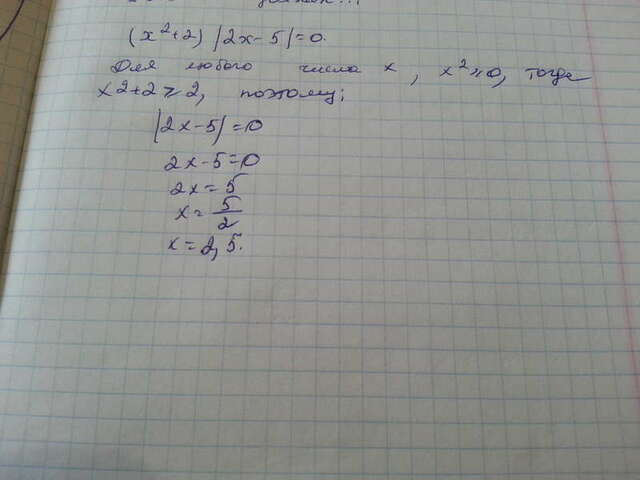 (x²+2) |2x-5|=0.
Для любого числа x, x²≥0, тогда
x²+2≥2, поэтому:
|2x-5|=0
2x-5=0
2x=5
x=5/2
x=2,5.